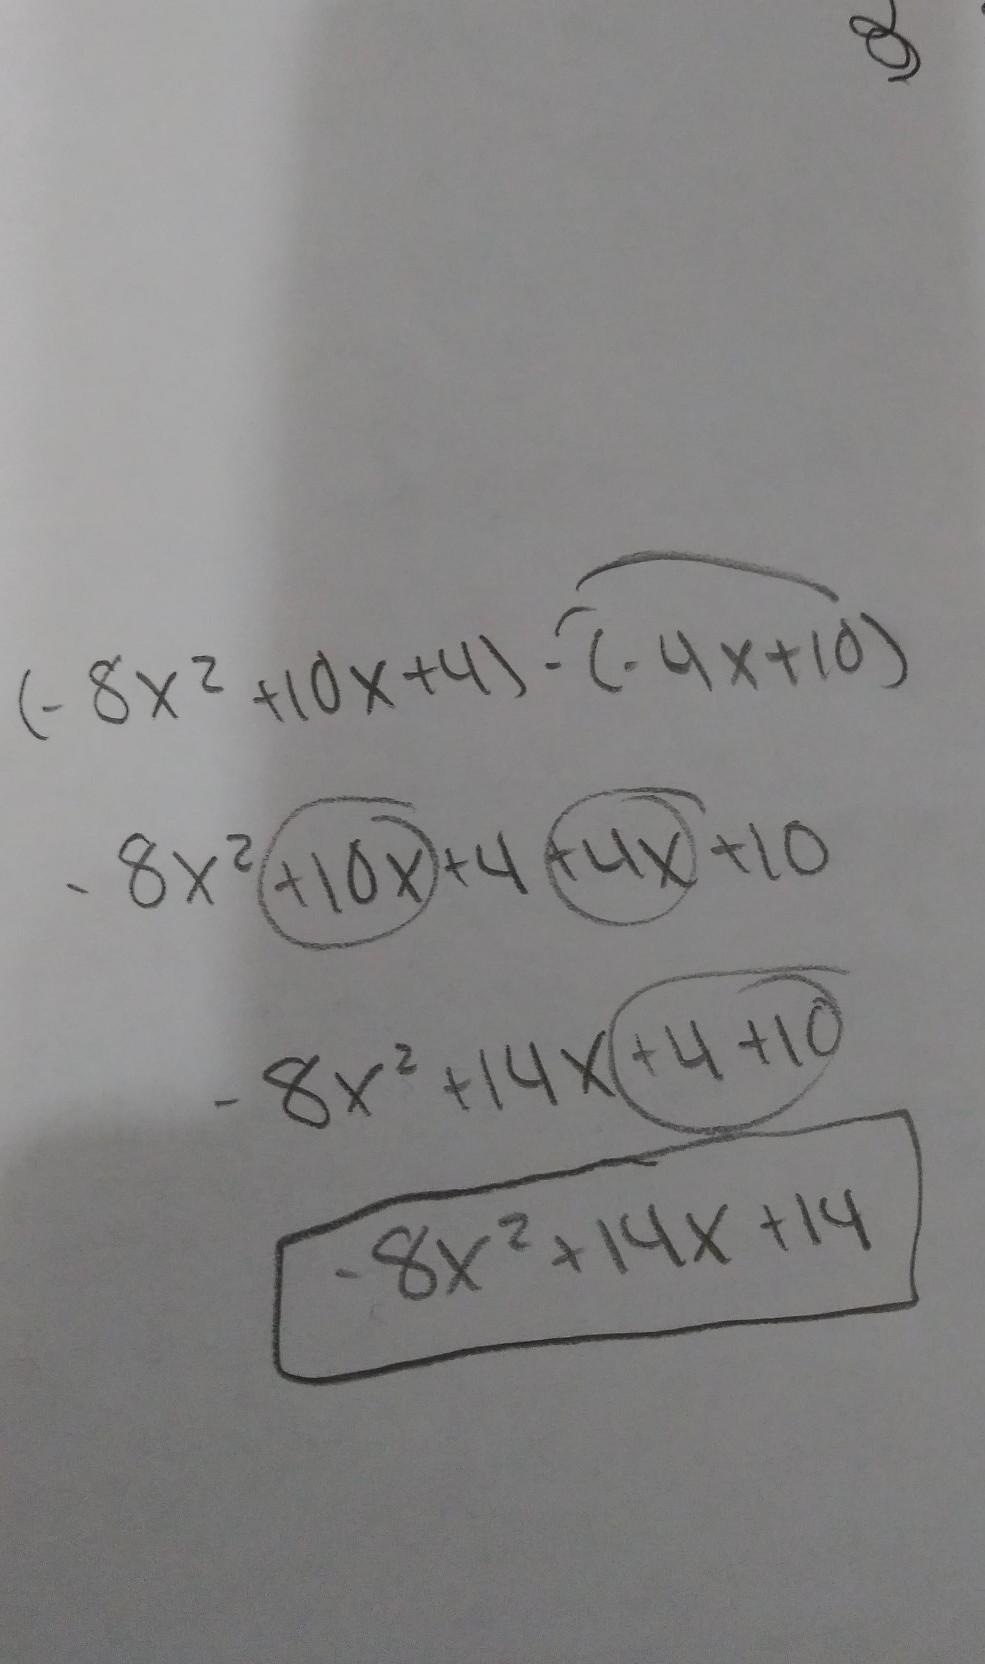 (-8x² +10x+4) - (-4x+10)
-8x² +10x +4 +4x +10
-8x² +14x +4 +10
-8x² +14x +14